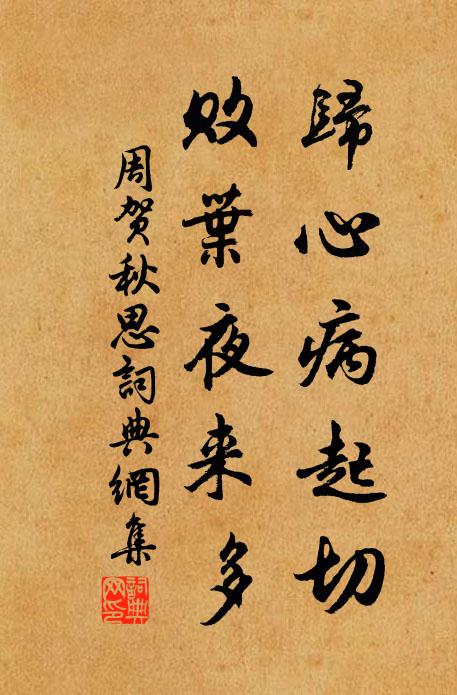 歸心病起切
敗葉夜来多
周贺秋思詞典網集
詞典网印